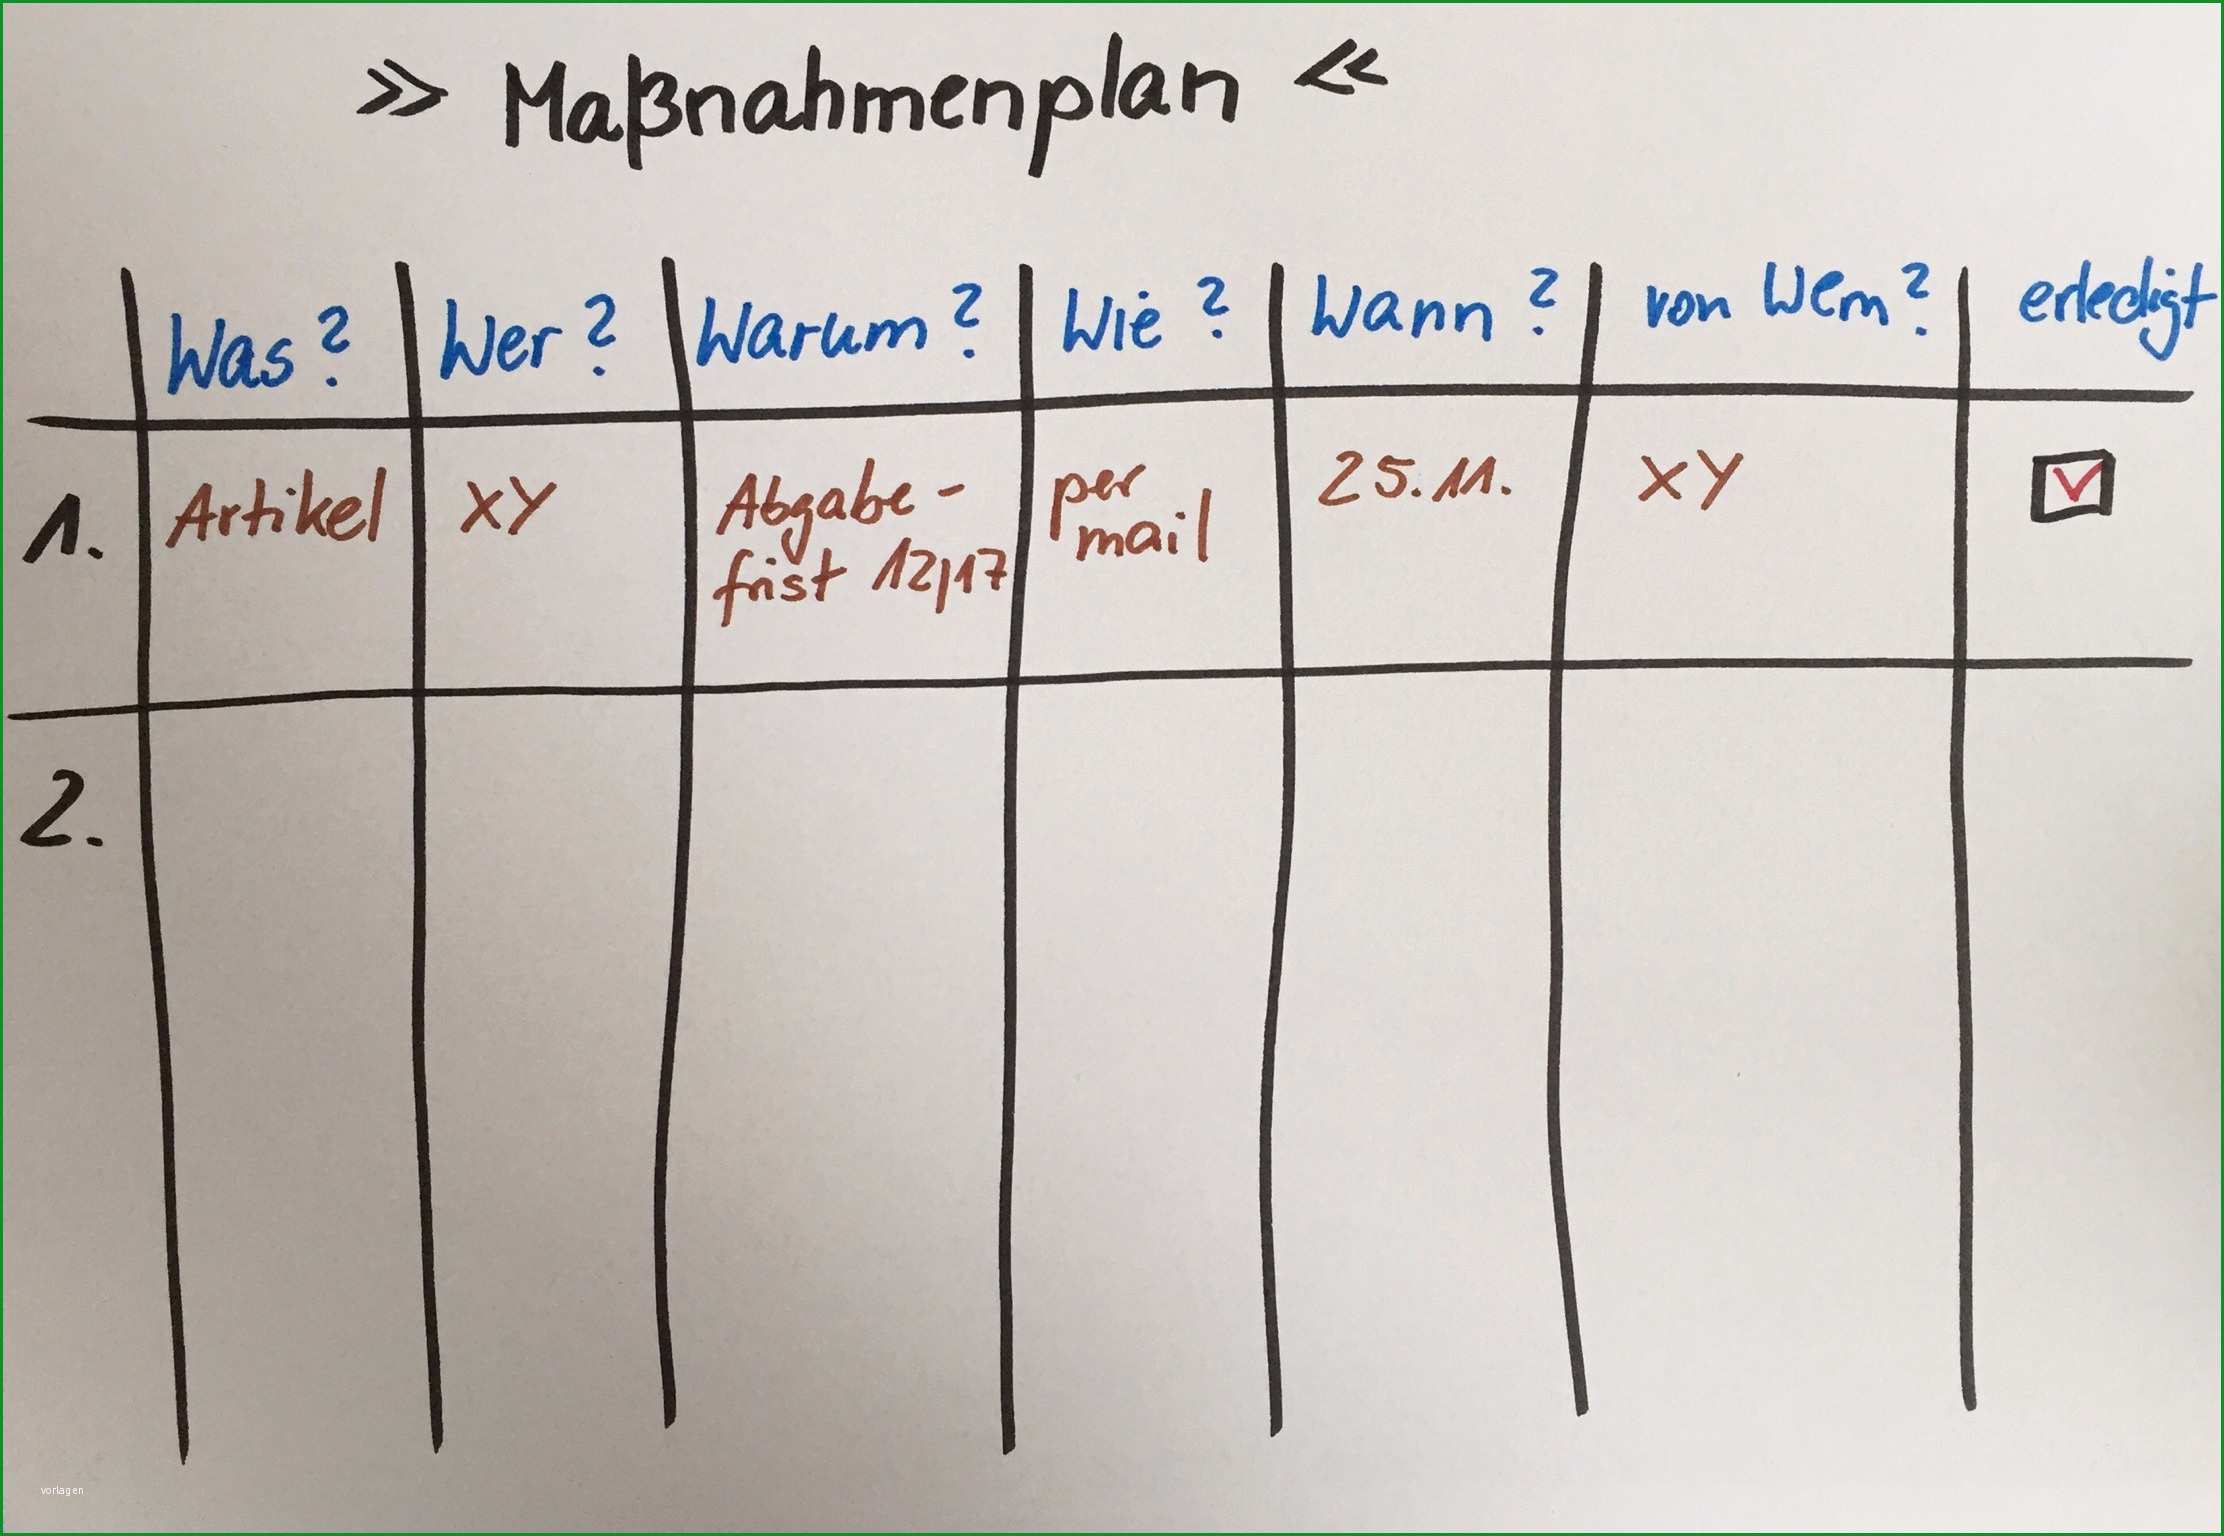 >> Maßnahmenplan <<
Was? Wer? Warum? Wie? Wann? von Wem? erledigt
1. Artikel XY Abgabe- per 25.11. XY
frist 12/17 mail
2.
vorlagen